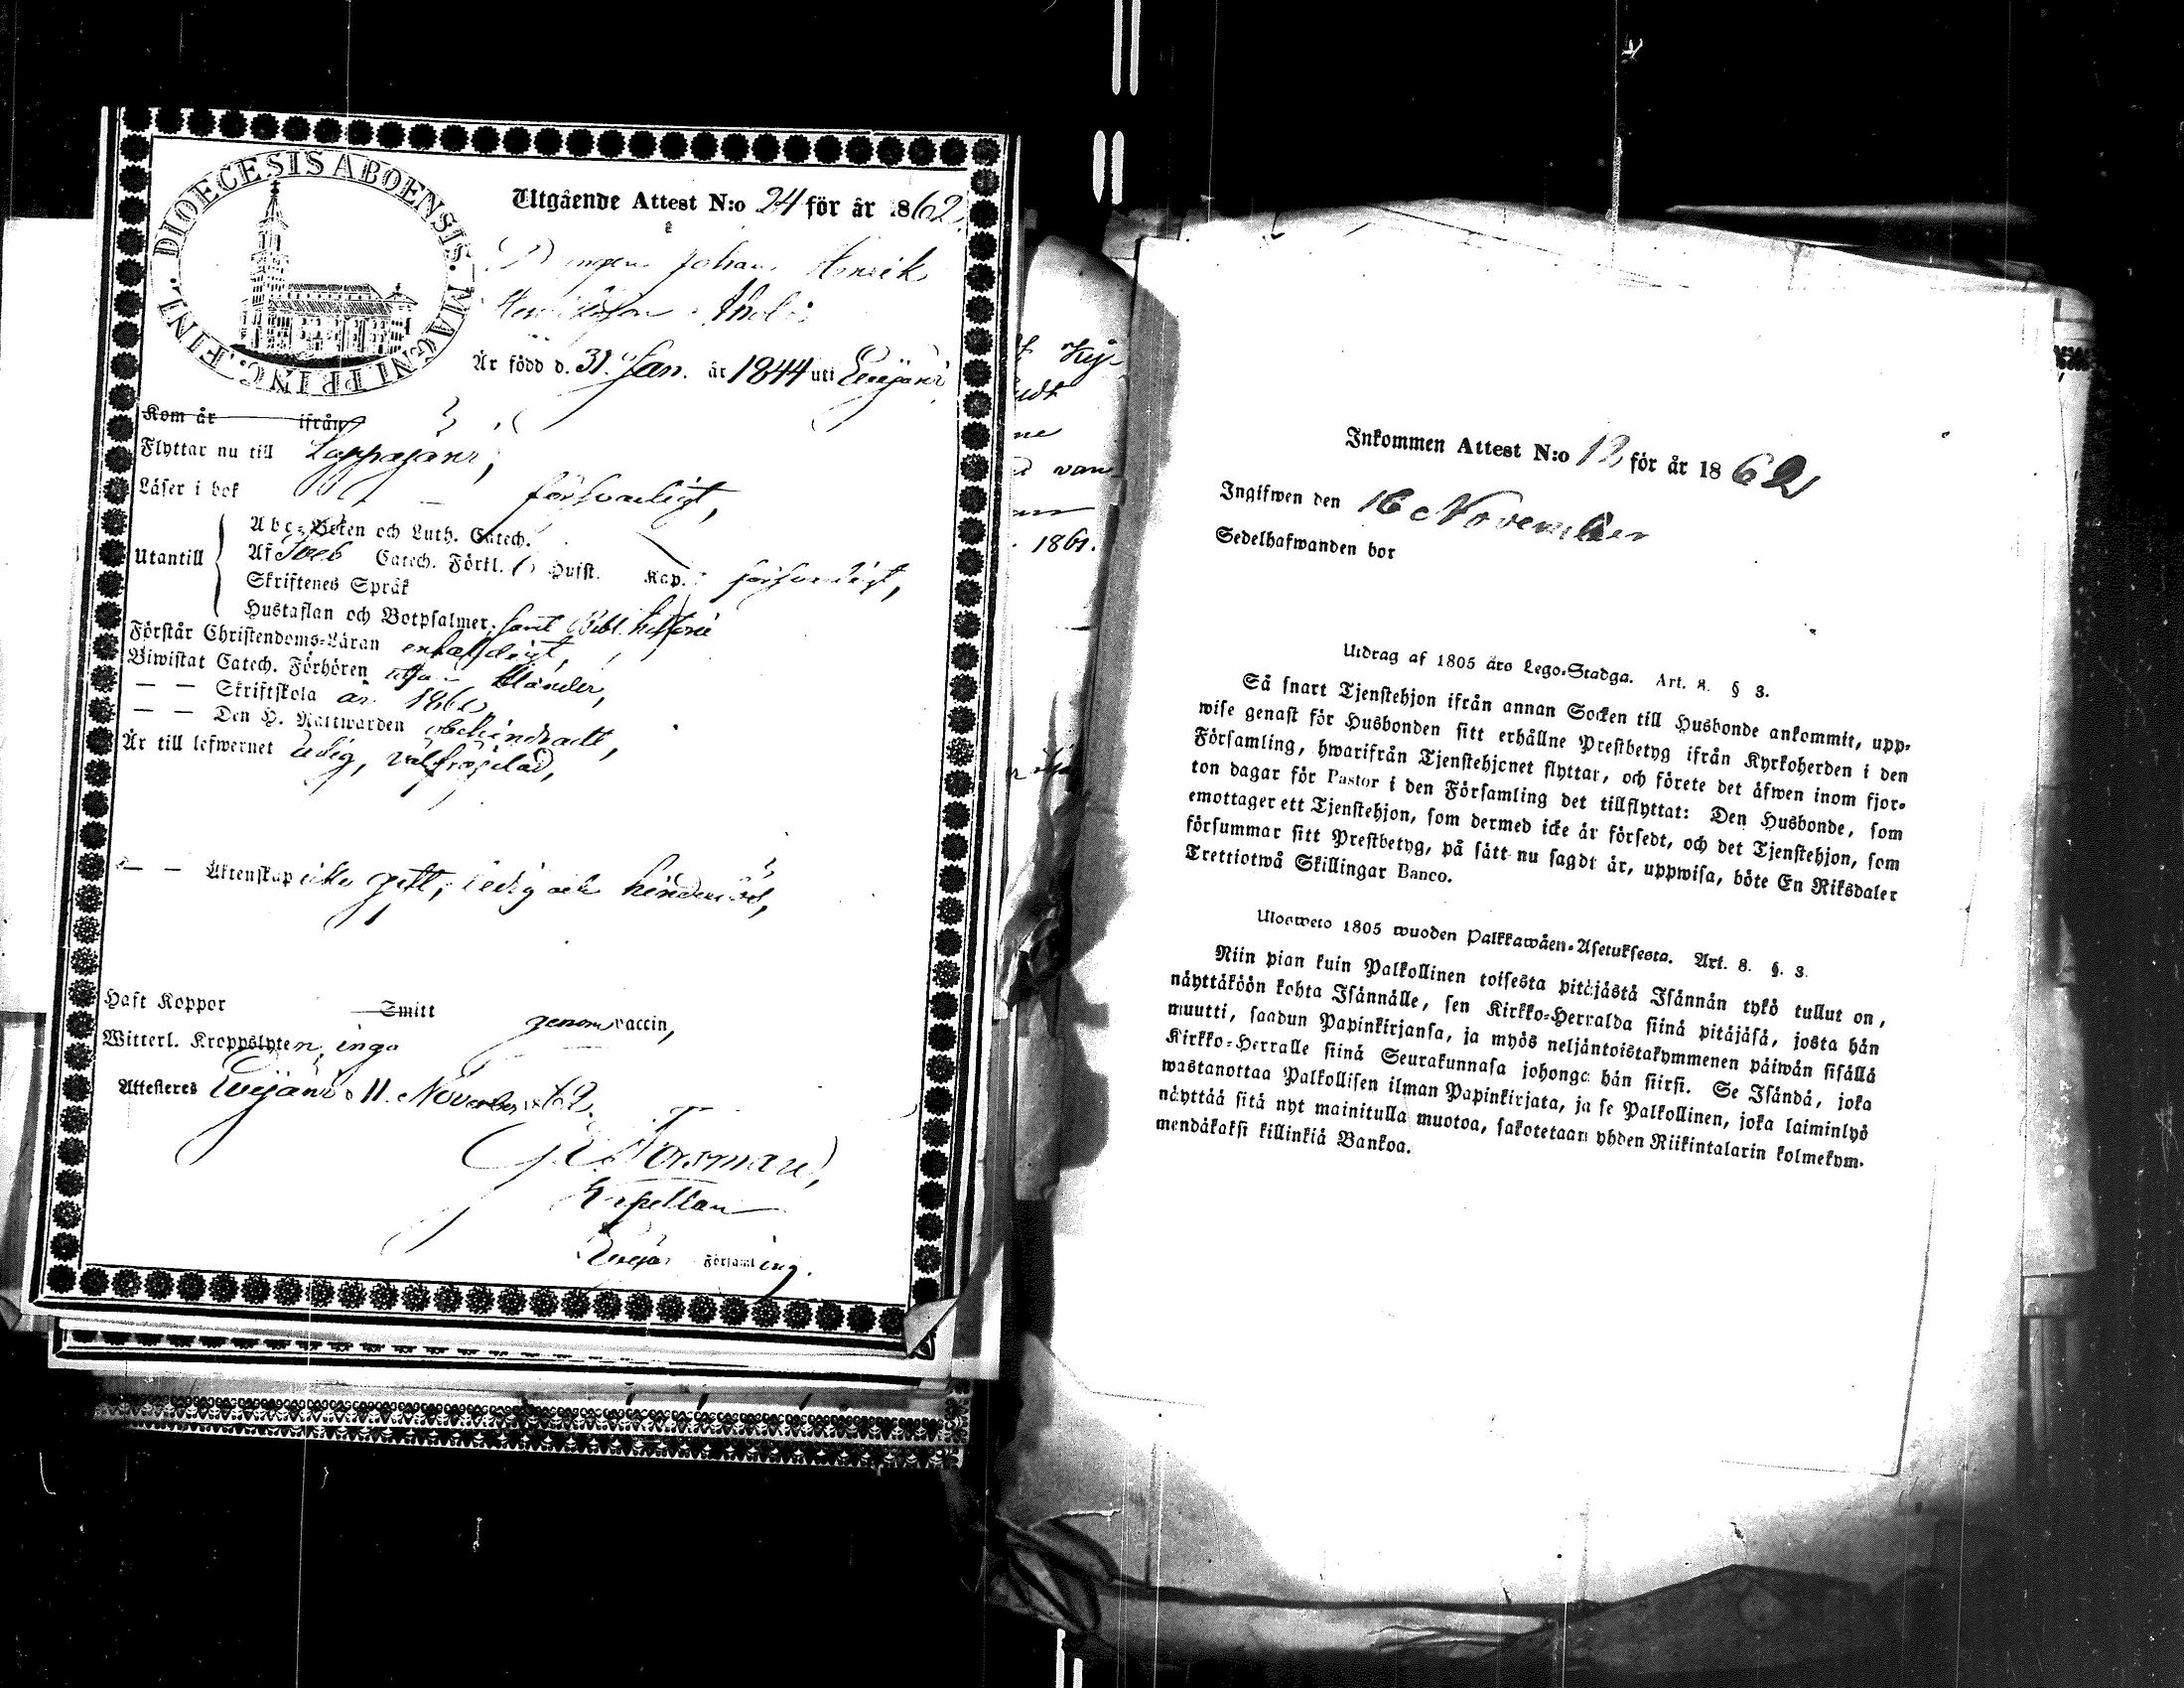 DIOECESIS ABOENSIS. MAGNI PRINC. FINL.
Utgående Attest N:o 24 för år 1862,
Drängen Johan Henrik
Henriksson
Är född d. 31 Jan. år 1844 uti Evijärvi
Kom år ifrån
Flyttar nu till Lappajärvi,
Läser i bok försvarligt,
Utantill
Abc-Boken och Luth. Catech.
Af Sveb Catech. Förkl. Hufst. Kap. försvarligt,
Skriftenes Språk
Hustaflan och Botpsalmer, samt Bibl. historie
Förstår Christendoms-Läran enfaldigt,
Biwistat Catech. Förhören
— — Skriftskola år 1860
— — Den H. Nattwarden obehindradt,
Är till lefwernet ledig, välfrejdad,
— — Äktenskap icke gift, ledig och hinderlös,
Haft Koppor Smitt genom vaccin,
Witterl. Kroppslyten, inga
Attesteras Evijärvi d 11. November 1862.
Forsman,
Kapellan
Evijärvi Församling.
1861.
Inkommen Attest N:o 12 för år 1862
Ingifwen den 16 November
Sedelhafwanden bor
Utdrag af 1805 års Lego-Stadga. Art. 8. § 3.
Så snart Tjenstehjon ifrån annan Socken till Husbonde ankommit, upp-
wise genast för Husbonden sitt erhållne Prestbetyg ifrån Kyrkoherden i den
Församling, hwarifrån Tjenstehjonet flyttat, och förete det äfwen inom fjor-
ton dagar för Pastor i den Församling det tillflyttat: Den Husbonde, som
emottager ett Tjenstehjon, som dermed icke är försedt, och det Tjenstehjon, som
försummar sitt Prestbetyg, på sätt nu sagdt är, uppwisa, böte En Riksdaler
Trettiotwå Skillingar Banco.
Ulosweto 1805 wuoden Palkkawäen-Asetuksesta. Art. 8. §. 3.
Niin pian kuin Palkollinen toisesta pitäjästä Isännän tykö tullut on,
näyttäköön kohta Isännälle, sen Kirkko-Herralda siinä pitäjäsä, josta hän
muutti, saadun Papinkirjansa, ja myös neljäntoistakymmenen päiwän sisällä
Kirkko-Herralle siinä Seurakunnasa johonga hän siirsi. Se Isändä, joka
wastanottaa Palkollisen ilman Papinkirjata, ja se Palkollinen, joka laiminlyö
näyttää sitä nyt mainitulla muotoa, sakotetaan yhden Riikintalarin kolmekym-
mendäkaksi killinkiä Bankoa.